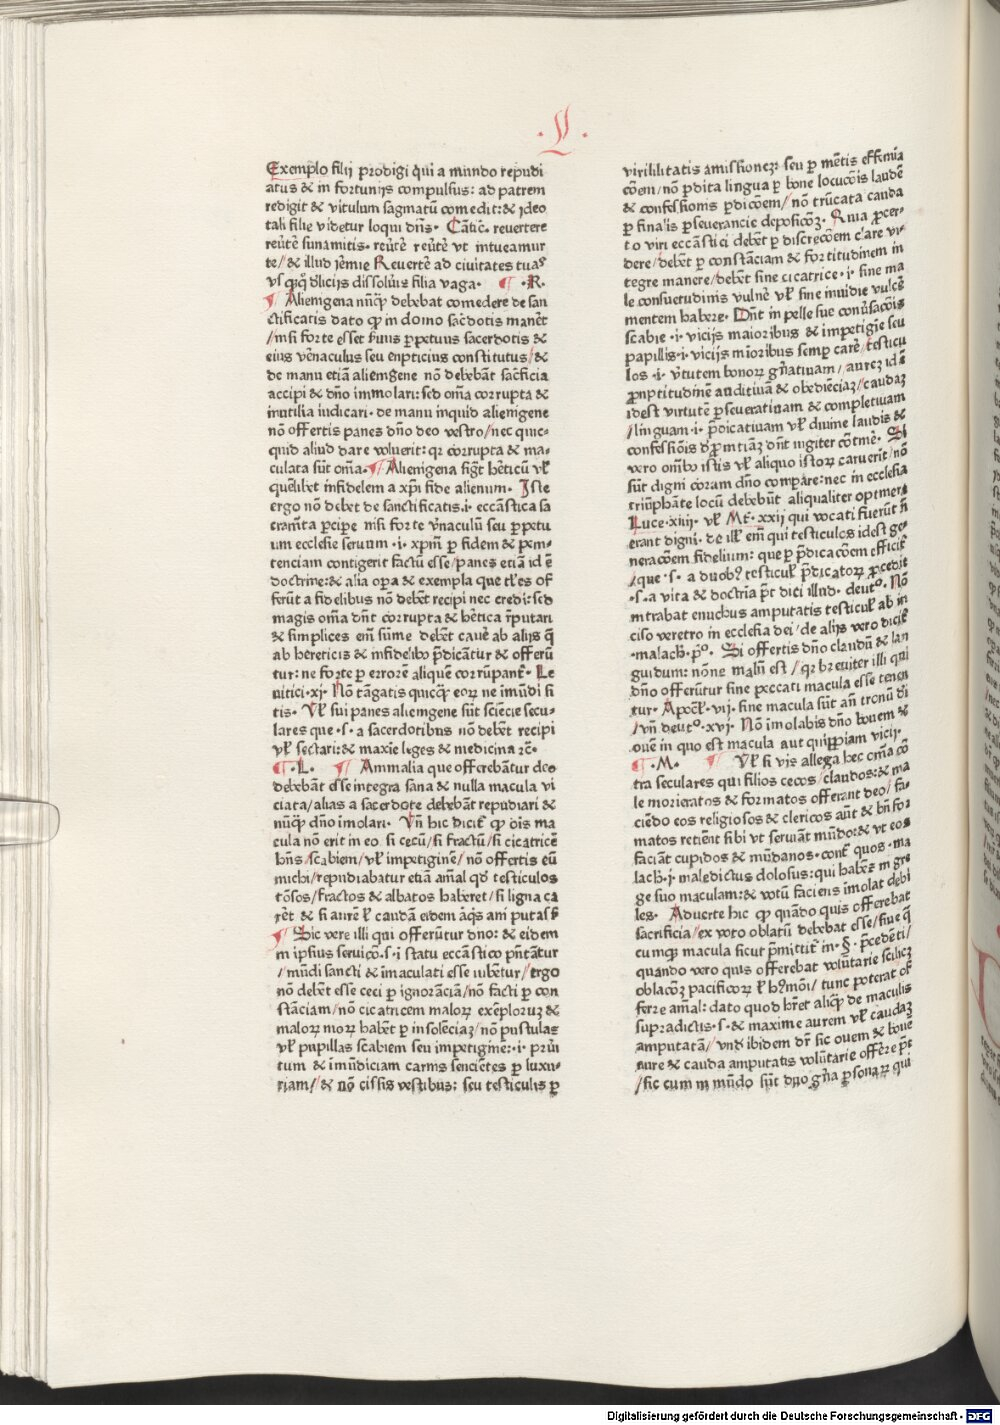 L
Exemplo filij prodigi qui a mundo repudi
atus & in fortunijs compulsus: ad patrem
redigit & vitulum sagmatū comedit: & ideo
tali filie videtur loqui dn̄s. Cātic̄. revertere
rev̄tē sunamitis. rev̄tē rev̄tē vt intueamur
te/ & illud jēmie Revertē ad civitates tuas
vsq̨q̨ dlicijs dissoluis filia vaga. ¶ .R.
¶ Alienigena nūq̨ debebat comedere de san
ctificatis dato q̨ in domo sac̄dotis manēt
/nisi forte esset s̄uus ꝑpetuus sacerdotis &
eius v̄naculus seu enpticius constitutus/&
de manu etiā alienigene nō debebāt sac̄ficia
accipi & dn̄o immolari: sed om̄ia corrupta &
inutilia iudicari. de manu inquid alienigene
nō offertis panes dn̄o deo vestro/nec quic-
quid aliud dare voluerit: qꝛ corrupta & ma-
culata sūt om̄a. ¶ Alienigena figt̄ hēticū vl̄
quēlibet infidelem a xp̄i fide alienum. Iste
ergo nō debet de sanctificatis.i. eccāstica sa
cramt̄a ꝑcipe nisi forte v̄naculū seu ꝑpetu
um ecclesie seruum .i. xp̄m ꝑ fidem & peni-
tenciam contigerit factū esse/panes etiā id ē
doctrine: & alia oꝑa & exempla que tles of
ferūt a fidelibus nō debēt recipi nec credi: sed
magis om̄a dn̄t corrupta & hētica r̄putari
& simplices em̄ sūme debēt cauē ab alijs q̄
ab hereticis & infidelibꝰ p̄dicātur & offerū
tur: ne forte ꝑ errorē aliquē corrūpant̄. Le
uitici.xj. Nō tāgatis quicq̨ eoꝝ ne īmūdi si
tis. Vl̄ sui panes alienigene sūt sciēcie secu-
lares que .s. a sacerdotibus nō debēt recipi
vl̄ sectari: & maxīe leges & medicina ꝛc̄.
¶ .L. ¶ Animalia que offerebātur deo
debebāt esse integra sana & nulla macula vi
ciata/alias a sacerdote debebāt repudiari &
nūq̨ dn̄o imolari. Vn̄ hic dicit̄ q̨ ōis ma
cula nō erit in eo. si cecū/si fractū/si cicatricē
hn̄s/scabiem/vl̄ impetiginē/nō offertis eū
michi/repudiabatur etiā am̄al qd̄ testiculos
tōsos/fractos & ablatos haberet/si ligna ca
rēt & si aurē l̄ caudā eidem
¶ Sic vere illi qui offerūtur dn̄o: & eidem
in ipsius seruicō.s. i statu eccāstico pn̄tātur
/mūdi sancti & imaculati esse iubētur/ergo
nō debēt esse ceci ꝑ ignorāciā/nō facti ꝑ con
stāciam/nō cicatricem maloꝝ exēploꝝ &
maloꝝ moꝝ habēt ꝑ insolēciaꝫ/nō pustulas
vl̄ pupillas scabiem seu impetiginē: .i. pruri
tum & imūdiciam carnis sencietes ꝑ luxu-
riam/& nō cissis vestibus: seu testiculis ꝑ
virilitatis amissioneꝫ: seu ꝑ mētis effemia
cōem/nō ꝑdita lingua ꝑ bone locucōis laudē
& confessionis ꝑdicōem/nō trūcata cauda
ꝑ finalis ꝑseverancie deposicōꝫ. Quia ꝓcer-
to viri eccāstici debēt ꝑ discrecōem clare vi
dere/debēt ꝑ constāciam & fortitudinem in
tegre manere/debēt sine cicatrice .i. sine ma
le consuetudinis vulnē vl̄ sine inuidie vulcē
mentem habere. Dn̄t in pelle sue conūsacōis
scabie .i. vicijs maioribus & impetigīe seu
papillis .i. vicijs mīoribus semꝑ carē/testicu
los .i. v̄tutem bonoꝝ gn̄atiuam/aureꝫ id ē
ꝓnptitudinē auditiuā & obediēciaꝫ/caudaꝫ
idest virtutē ꝑseueratiuam & completiuam
/linguam .i. p̄dicatiuam vl̄ diuine laudis &
confessiōis
vero om̄ibꝰ istis vl̄ aliquo istoꝝ caruerit/nō
sūt digni coram dn̄o compare: nec in ecclesia
triūphāte locū debebūt aliqualiter optinere
Luce.xiiij. vl̄ Mt̄.xxij qui vocati fuerūt n̄
erant digni. de ill̄ em̄ qui testiculos idest ge-
neracōem fidelium: que ꝑ p̄dicacōem efficit̄
/que .s. a duobꝰ testicul̄ p̄dicatoꝝ ꝓcedit
.s. a vita & doctrīa pt̄ dici illud. deutᵒ. Nō
intrabat enuchus amputatis testicul̄ ab in
ciso veretro in ecclesia dei/de alijs vero dicit̄
.malach. pᵒ. Si offertis dn̄o claudū & lan
guidum: nōne malū est/qꝛ breuiter illi qui
dn̄o offerūtur sine peccati macula esse tenen
tur. Apocl̄.vij. sine macula sūt an̄ tronū di
/vn̄ deutᵒ.xvj. Nō imolabis dn̄o bouem &
ouē in quo est macula aut quippiam vicij.
¶ .M. ¶ Vl̄ si vis allega hec om̄a cō
tra seculares qui filios cecos/claudos: & ma
le morieratos & formatos offerant deo/fa-
ciēdo eos religiosos & clericos aūt & bn̄ for
matos retiēt sibi vt seruiāt mūdo: & vt eos
faciāt cupidos & mūdanos. cont̄ quos .ma
lach.j. maledictus dolosus: qui habet in gre
ge suo maculam: & votū faciens imolat debi
les. Aduerte hic q̨ quādo quis offerebat
sacrificia/ex voto oblatū debebat esse/siue q̄
cumq̨ macula sicut p̄mittit̄ in .§. p̄cedēti/
quando vero quis offerebat volūtarie scilicꝫ
oblacōꝫ pacificoꝝ l̄ hꝰmōi/tunc poterat of
ferre am̄al: dato quod hr̄et aliq̨ de maculis
supradictis .s. & maxime aurem vl̄ caudaꝫ
amputatā/vndi ibidem dr̄ sic ouem & boue
aure & cauda amputatis volūtarie offēre pt̄
/sic cum in mūdo sūt duo gn̄a ꝑsonaꝝ qui
Digitalisierung gefördert durch die Deutsche Forschungsgemeinschaft - DFG